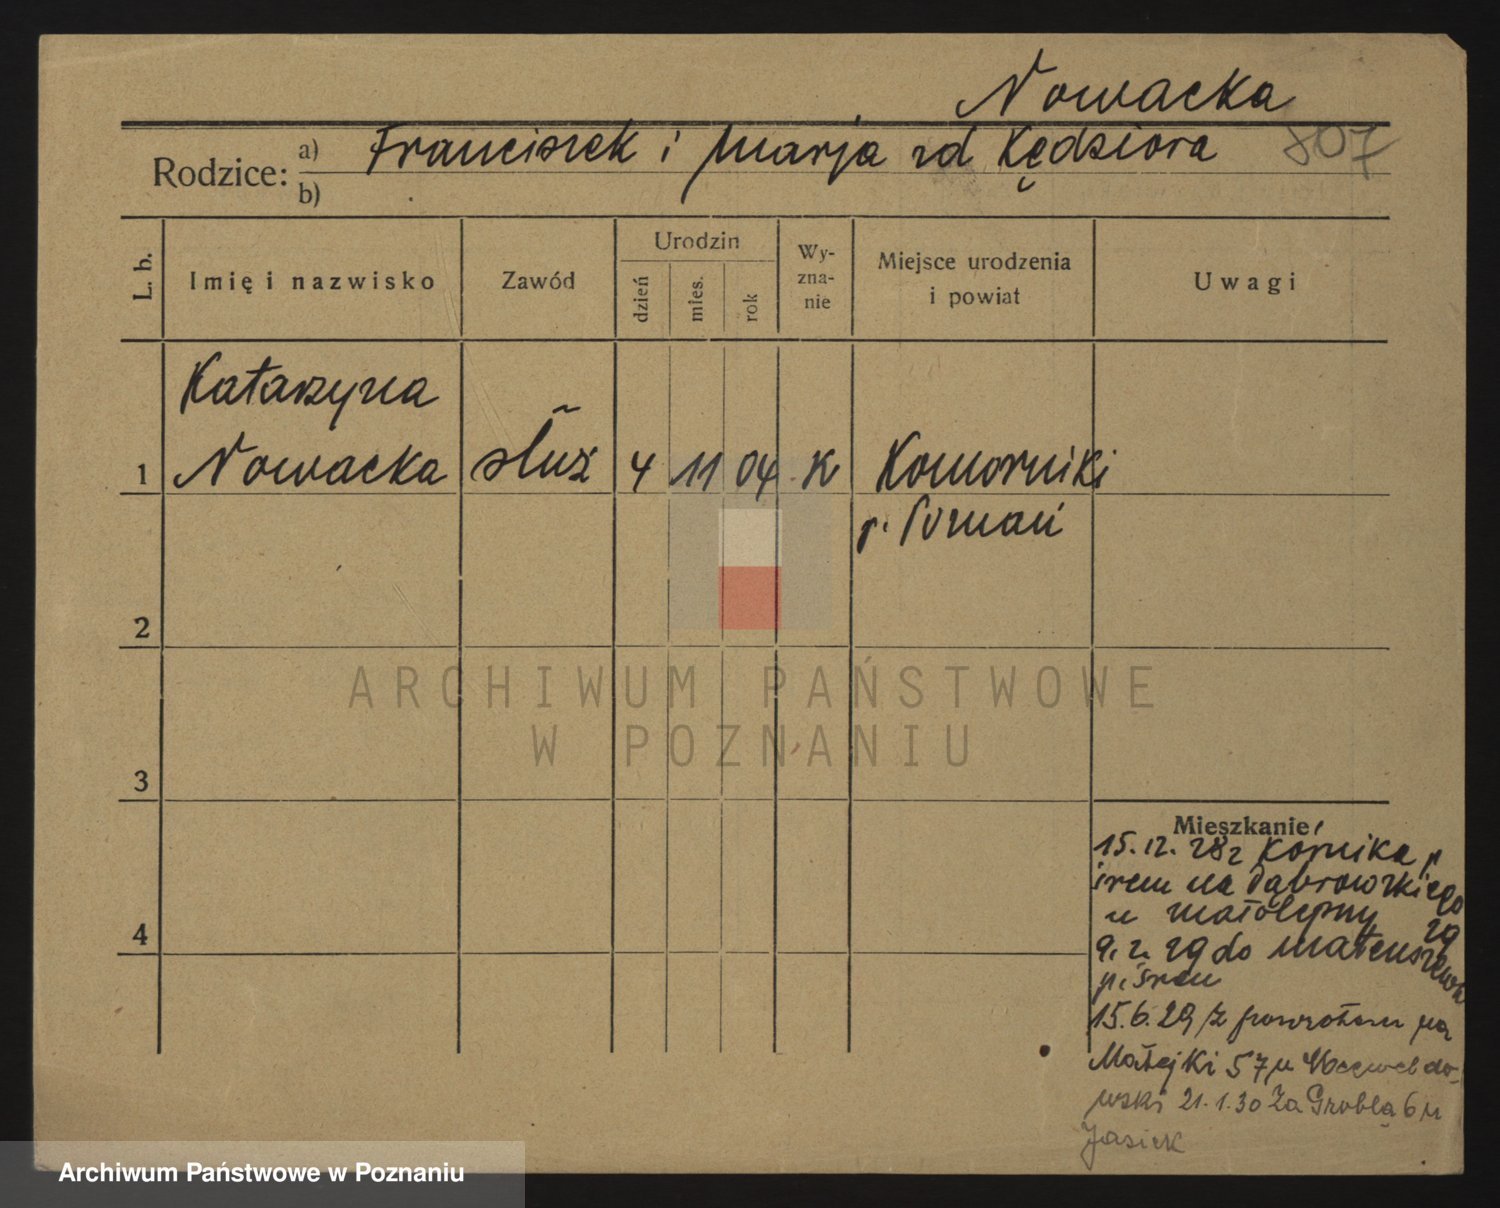 Nowacka
Rodzice: a) Franciszek i Marja zd Kędziora 807
b)
L. b. Imię i nazwisko Zawód Urodzin dzień mies. rok Wy-zna-nie Miejsce urodzenia i powiat Uwagi
Katarzyna
1 Nowacka służ 4 11 04 K Komorniki
p. Poznań
2
3
4
Mieszkanie
15.12.28 z Kórnika p
śrem na Dąbrowskiego
u Małolepszy 29
9.2.29 do Mateuszewo
p. śrem
15.6.29 z powrotem na
Matejki 57 u
wski 21.1.30 Za Groblą 6 u
Jasiek
ARCHIWUM PAŃSTWOWE
W POZNANIU
Archiwum Państwowe w Poznaniu